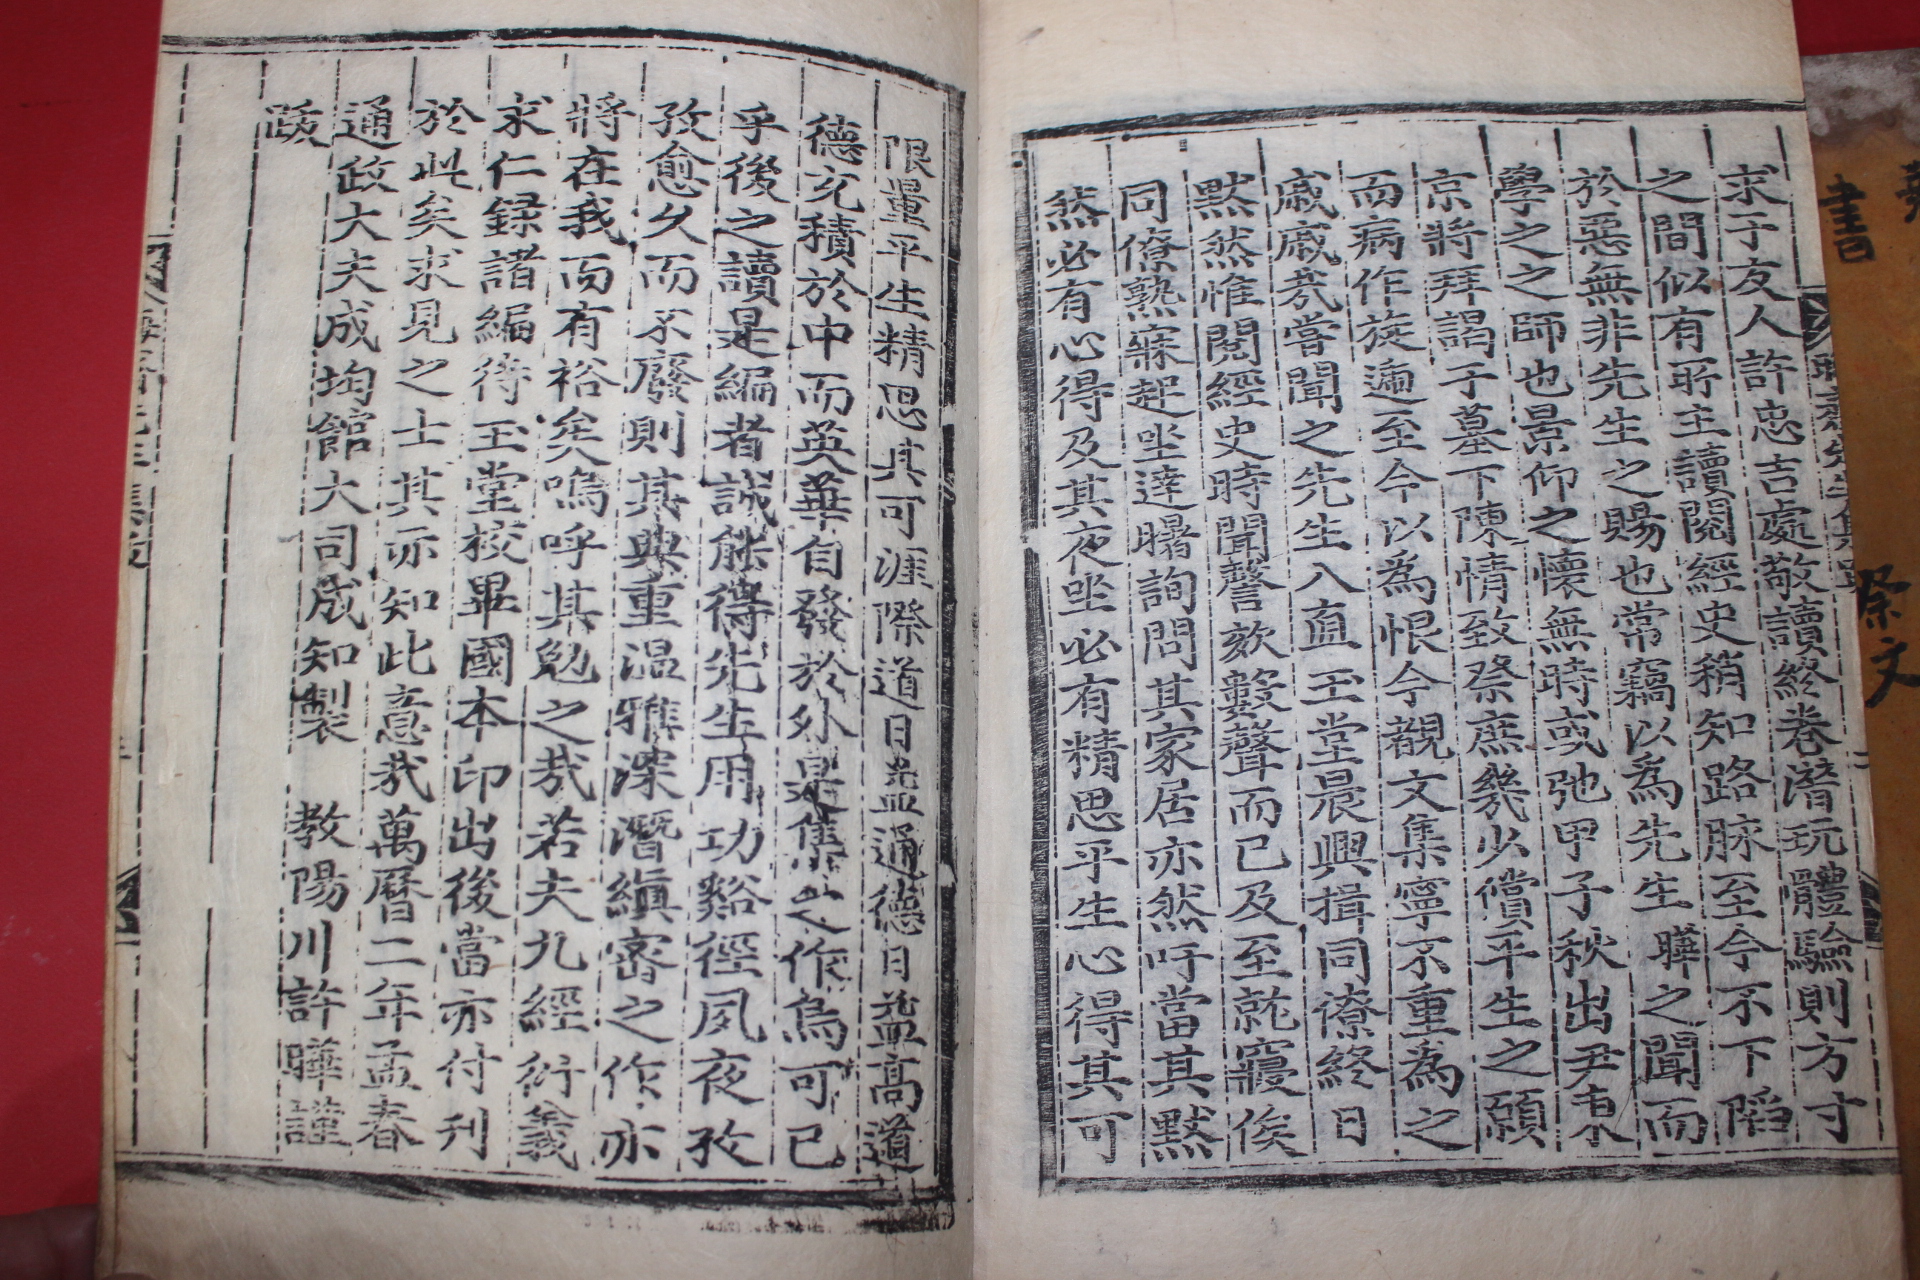 求于友人許忠吉處敬讀終卷潛玩體驗則方寸
之間似有所主讀閱經史稍知路脉至今不下陷
於惡無非先生之賜也常竊以為先生曄之聞而
學之之師也景仰之懷無時或弛甲子秋出尹東
京將拜謁于墓下陳情致祭庶幾少償平生之願
而病作旋遞至今以為恨今觀文集寧不重為之
戚戚㢤嘗聞之先生入直玉堂晨興揖同僚終日
默然惟閱經史時聞謦欬數聲而已及至就寢俟
同僚熟寐起坐達曙詢問其家居亦然吁當其默
然必有心得及其夜坐必有精思平生心得其可
限量平生精思其可涯際道日益通德日益高道
德充積於中而英華自發於外是集之作烏可已
乎後之讀是編者誠能得先生用功谿徑夙夜孜
孜愈久而不廢則其典重温雅深潛縝密之作亦
將在我而有裕矣嗚呼其勉之㢤若夫九經衍義
求仁録諸編待玉堂校畢國本印出後當亦付刊
於此矣求見之士其亦知此意㢤萬曆二年孟春
通政大夫成均館大司成知製 教陽川許曄謹
跋
晦齋先生集跋
書
祭文